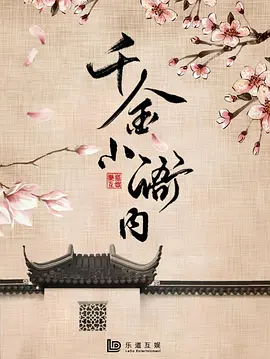 千金小衙内
乐道互娱
LeDo Entertainment